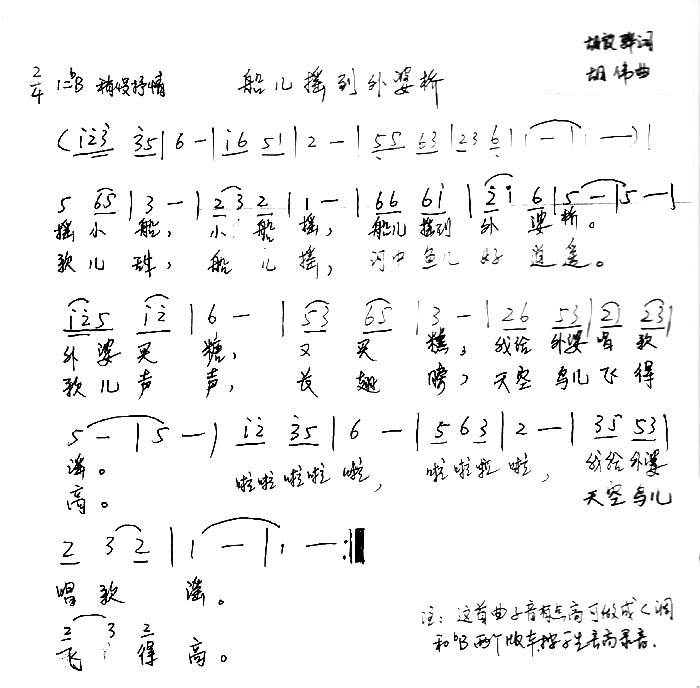 胡 词
胡伟曲
2/4 1=bB 稍慢抒情 船儿摇到外婆桥
(i̇2̇3̇ 3̇5|6 -|i̇6 51|2 -|55 63|23 6|1 -|1 -)|
5 65|3 -|23 2|1 -|66 6i̇|2̇i̇ 6|5 -|5 -|
摇小船，小船摇，船儿摇到外婆桥。
歌儿 ，船儿摇，河中鱼儿好逍遥。
i̇2̇5 i̇2̇|6 -|53 65|3 -|26 53|21 23|
外婆买糖，又买糕，我给外婆唱歌
歌儿声声，长翅膀，天空鸟儿飞得
5 -|5 -|i̇2̇ 3̇5|6 -|5 63|2 -|35 53|
谣。 啦啦啦啦啦，啦啦啦啦，我给外婆
高。 天空鸟儿
2 3 2|1 -|1 -:‖
唱歌谣。
2 3 2
飞得高。
注：这首曲子音有点高可做成C调
和bB两个版本 学生 高录音.